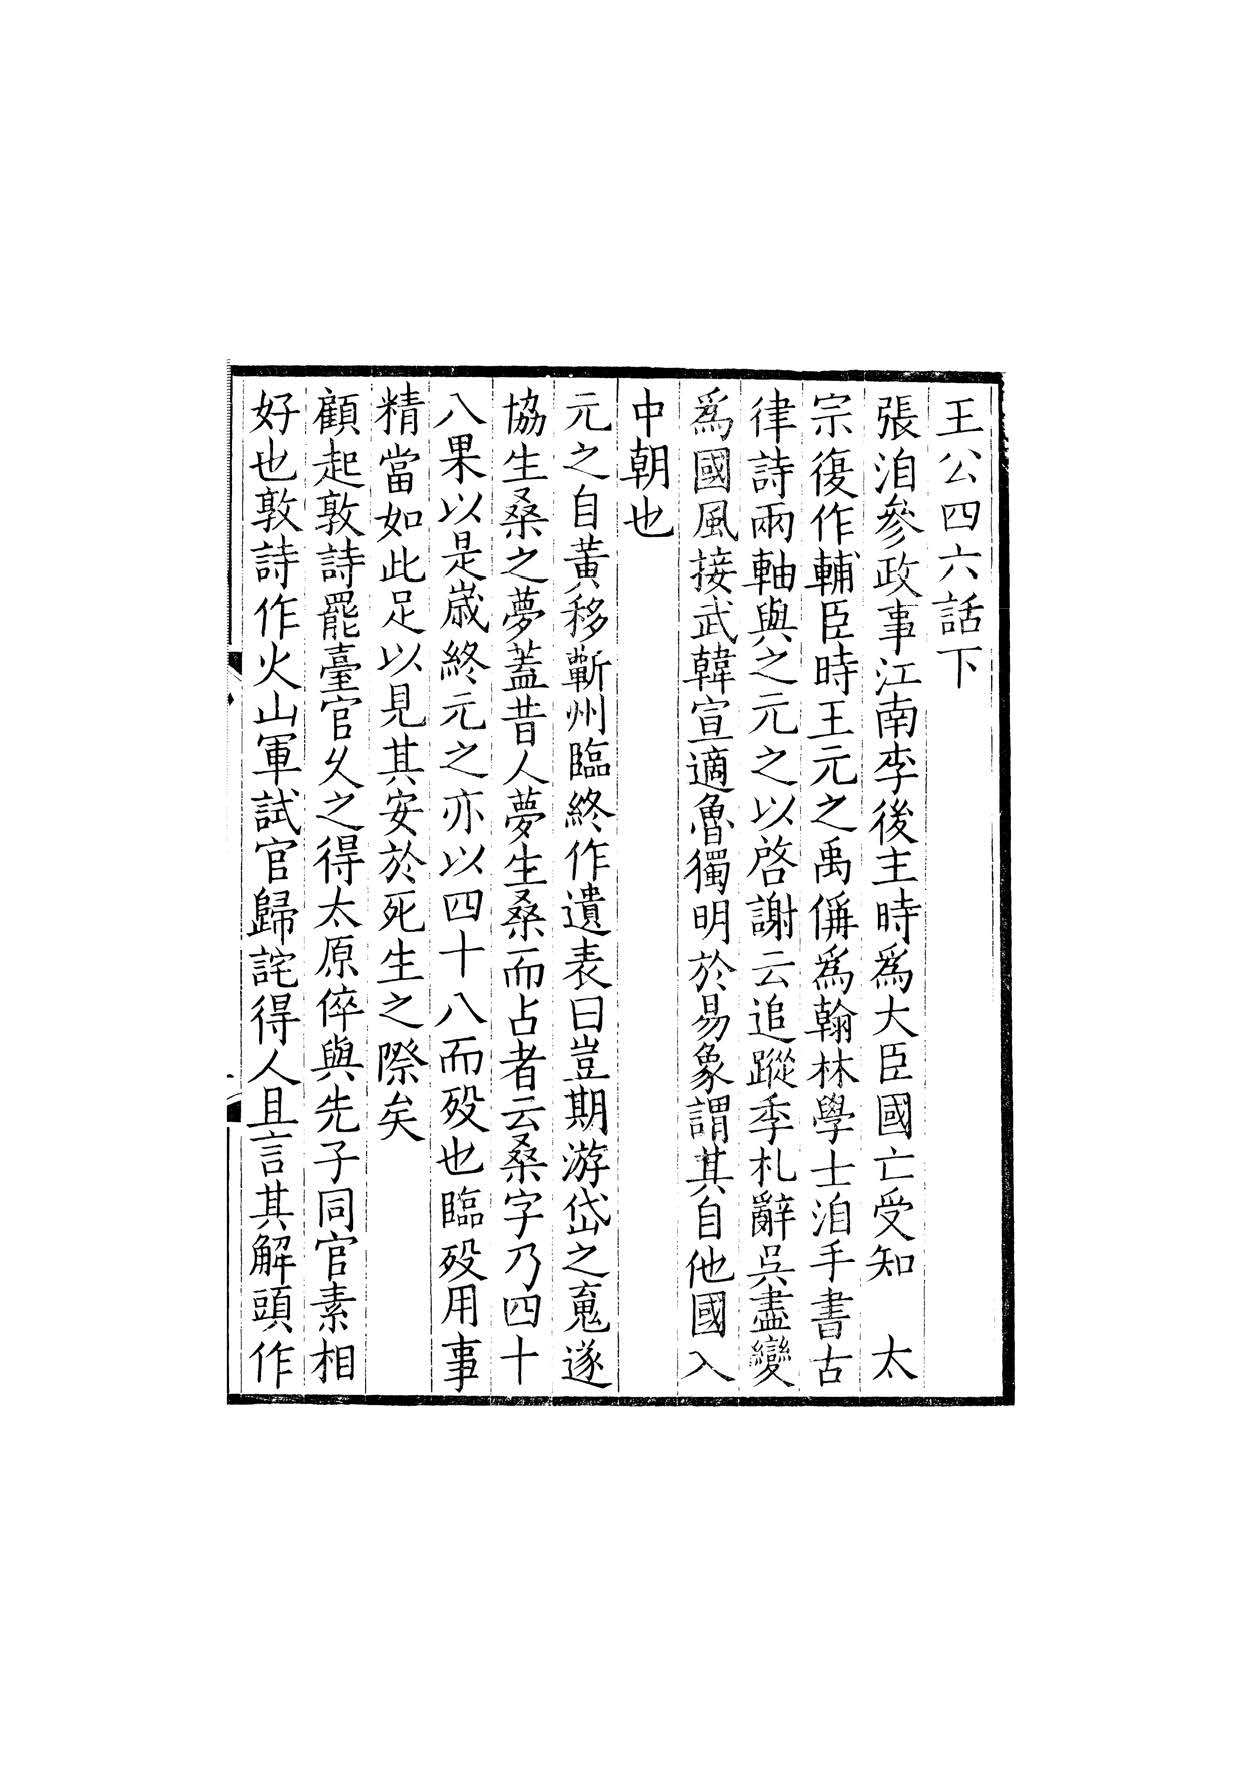 王公四六話下
張洎參政事江南李後主時爲大臣國亡受知　太
宗復作輔臣時王元之禹偁爲翰林學士洎手書古
律詩兩軸與之元之以啓謝云追蹤季札辭吳盡變
爲國風接武韓宣適魯獨明於易象謂其自他國入
中朝也
元之自黃移蘄州臨終作遺表曰豈期游岱之䰟遂
協生桑之夢蓋昔人夢生桑而占者云桑字乃四十
八果以是歲終元之亦以四十八而歿也臨歿用事
精當如此足以見其安於死生之際矣
顧起敦詩罷臺官久之得太原倅與先子同官素相
好也敦詩作火山軍試官歸詫得人且言其解頭作